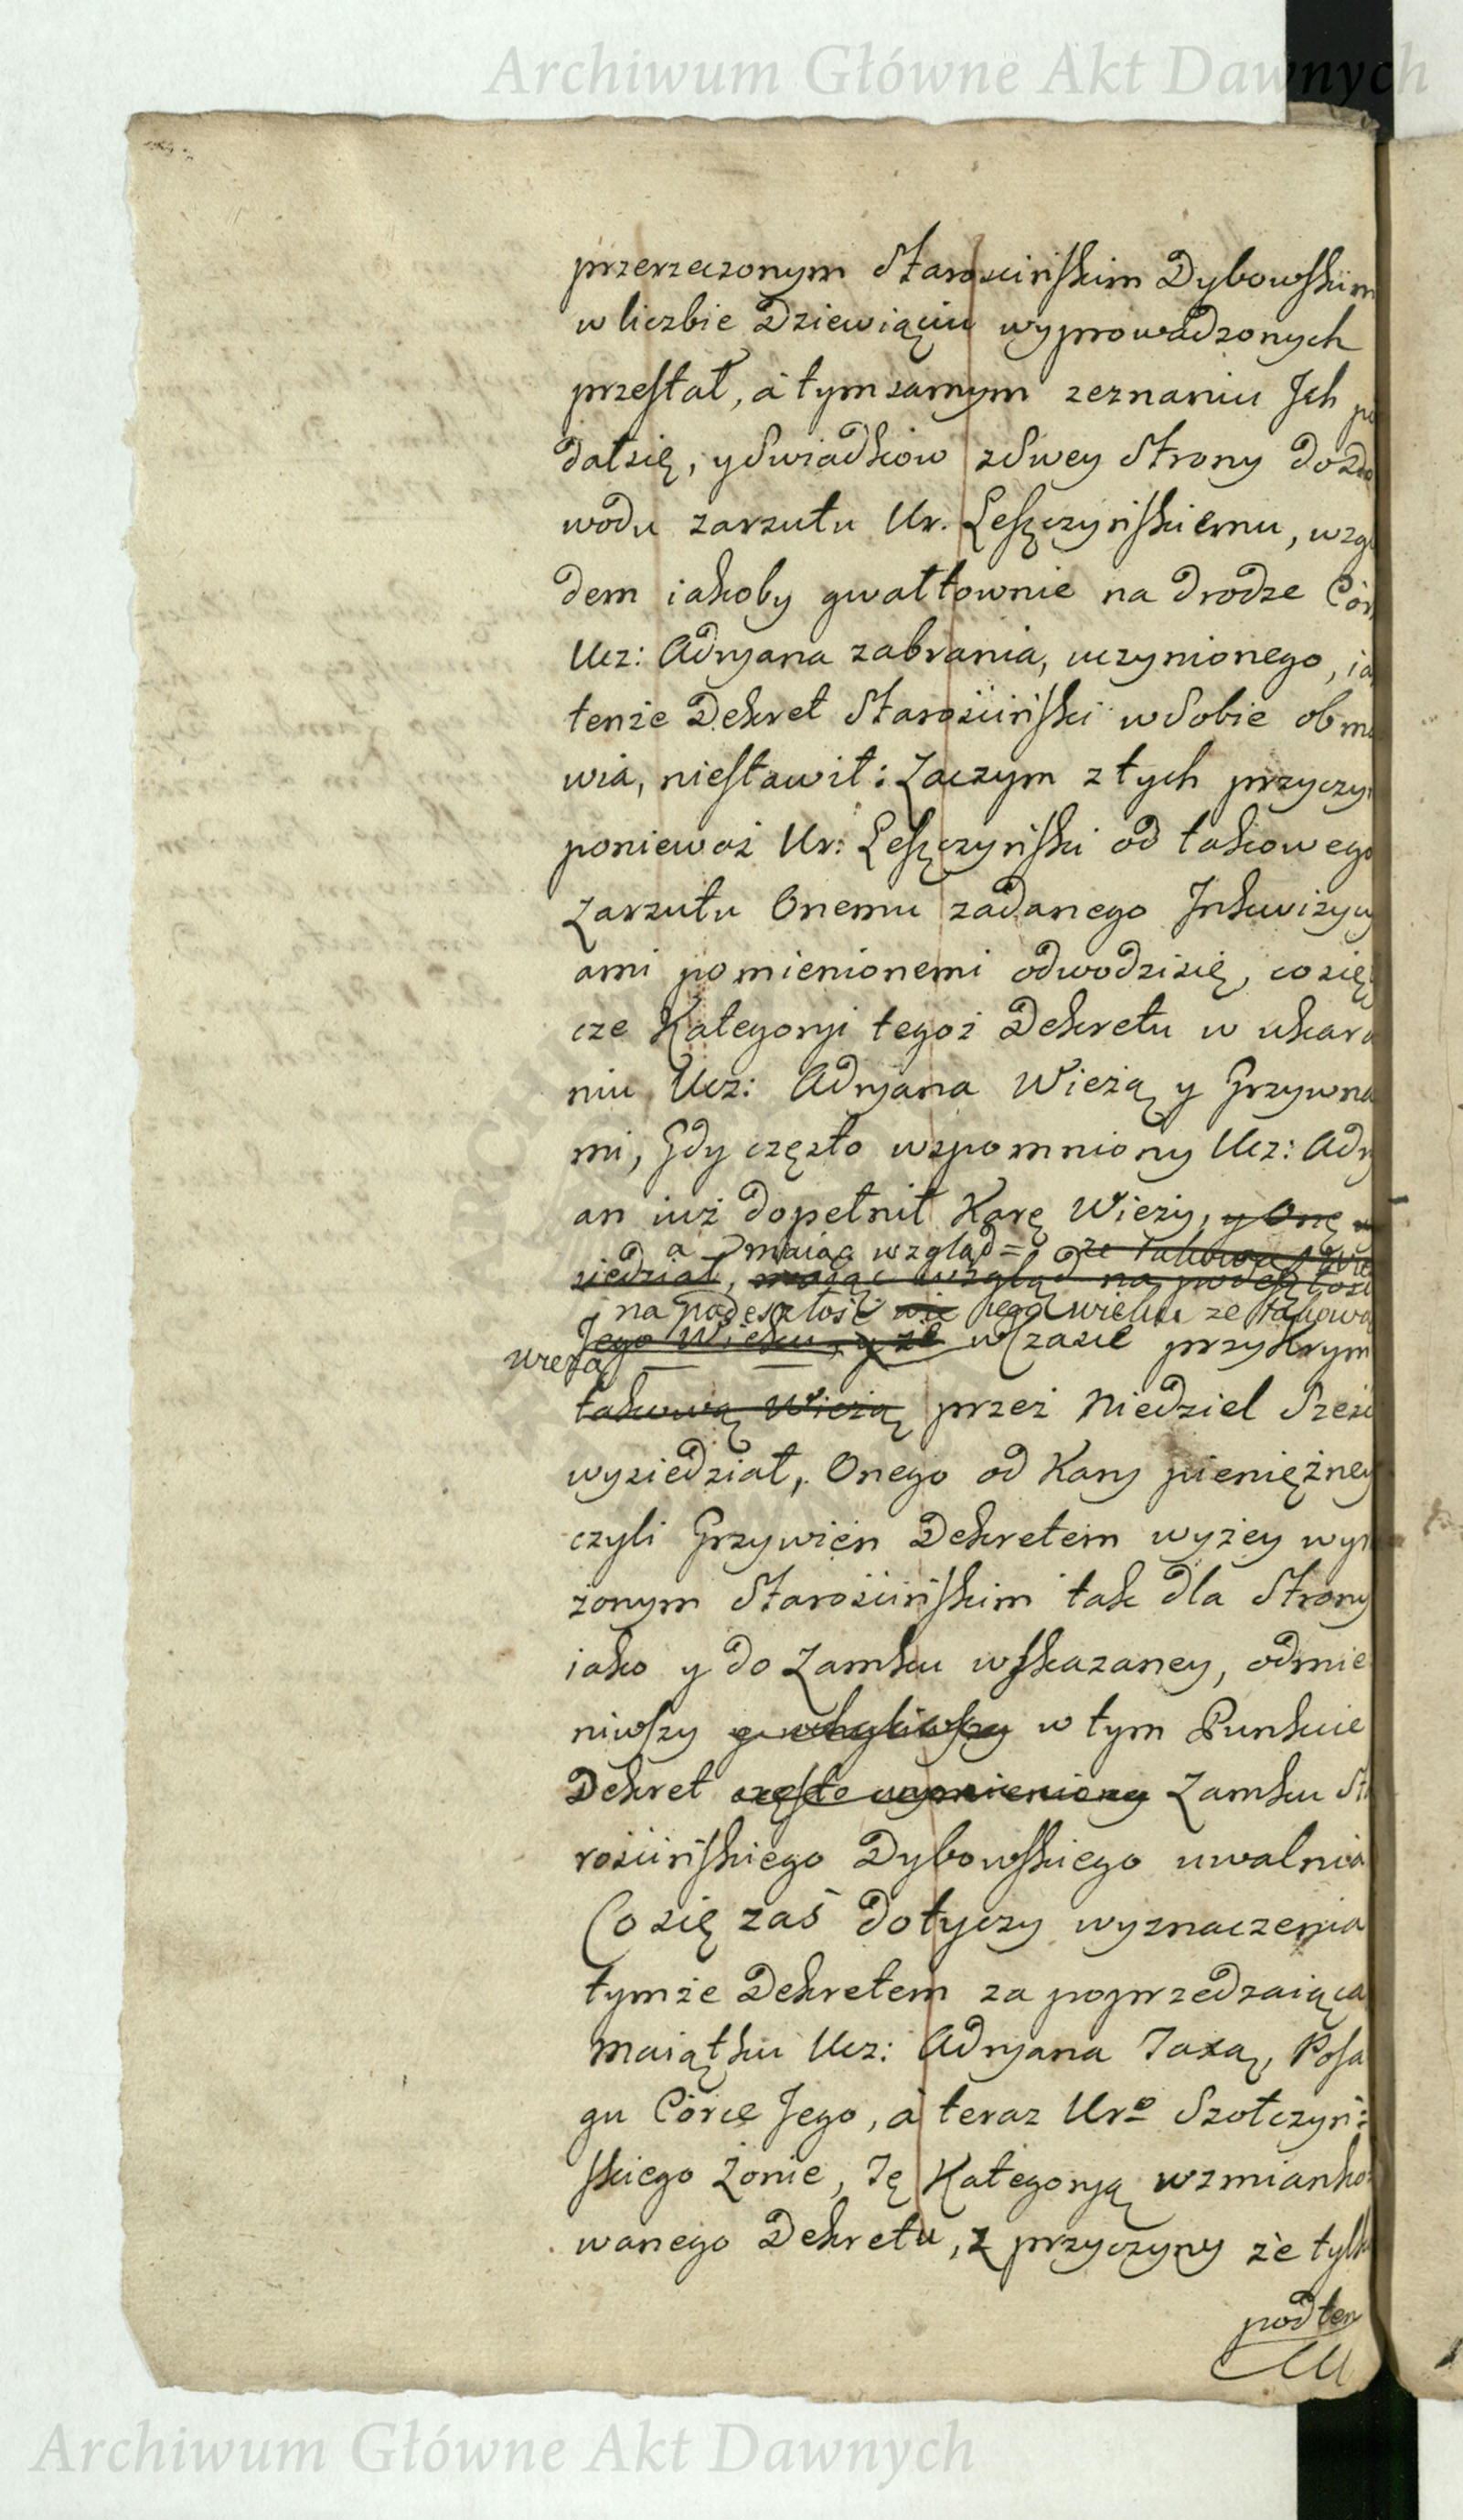 Archiwum Główne Akt Dawnych
przerzeczonym Starościńskim Dybowskim
w liczbie Dziewiąciu wyprowadzonych
przestał, á tym samym zeznaniu Jch po
dał się, y Swiadkow z Swey Strony do Do
wodu zarzutu Ur. Leszczyńskiemu, wzglę
dem iakoby gwałtownie na drodze Cór
Ucz: Adryana zabrania, uczynionego, ia
tenże Dekret Starościński w Sobie obma
wia, niestawił: Zaczym z tych przyczyn
ponieważ Ur: Leszczyński od takowego
Zarzutu Onemu zadanego Jnkwizycy
ami pomienionemi odwodzi się, co się
cze Kategoryi tegoż Dekretu w ukara
niu Ucz: Adryana Wieżą y Grzywna
mi, Gdy często wspomniony Ucz: Adry
an iuż dopełnił Karę Wieży, y Onę
a maiąc wzgląd= że takową
siedział, maiąc wzgląd na podeszłość
na podeszłość wie iego wieku ze takową
Jego Wieku, y że w czasie przykrym
wieżą
takową Wieżą przez Niedziel Sześć
wysiedział, Onego od Kary pieniężney
czyli Grzywien Dekretem wyżey wyra
żonym Starościńskim tak dla Strony
iako y do Zamku wskazaney, odmie
niwszy y uchyliwszy w tym Punkcie
Dekret często wymieniony Zamku Sta
rościńskiego Dybowskiego uwalnia
Co się zaś dotyczy wyznaczenia
tymże Dekretem za poprzedzaiącą
Maiątku Ucz: Adryana Taxą, Posa
gu Córce Jego, á teraz Uro Szołczyń:
skiego Żonie, Tę Kategoryą wzmianko:
wanego Dekretu, z przyczyny że tylko
pod ten
Archiwum Główne Akt Dawnych